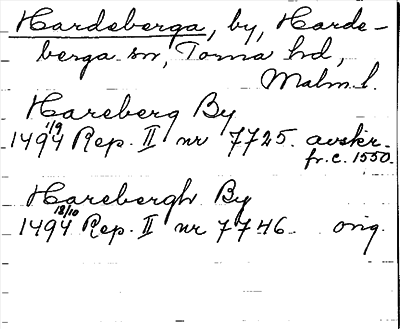 Hardeberga, by, Harde-
berga sn, Torna hd,
Malm. l.
Hareberg By
1494 1/9 Rep. II nr 7725. avskr.
fr. c. 1550.
Harebergh By
1494 18/10 Rep. II nr 7746. orig.